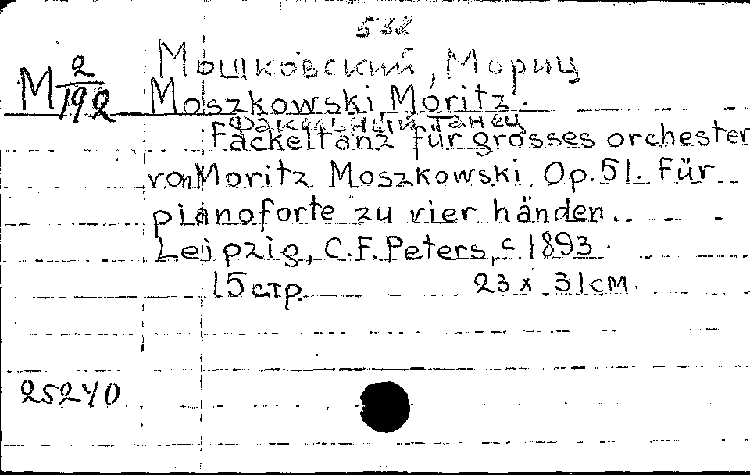 532
Мошковский, Мориц
M 2/192
Moszkowski, Moritz.
Факельный танец
Fackeltanz für grosses orchester
von Moritz Moszkowski. Op. 51. Für
pianoforte zu vier händen.
Leipzig, C.F. Peters, c 1893.
15 стр. 23 x 31 см.
25240